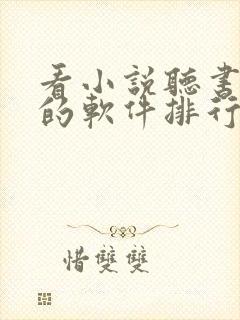 看小説聽書
的軟件排行
惜雙雙